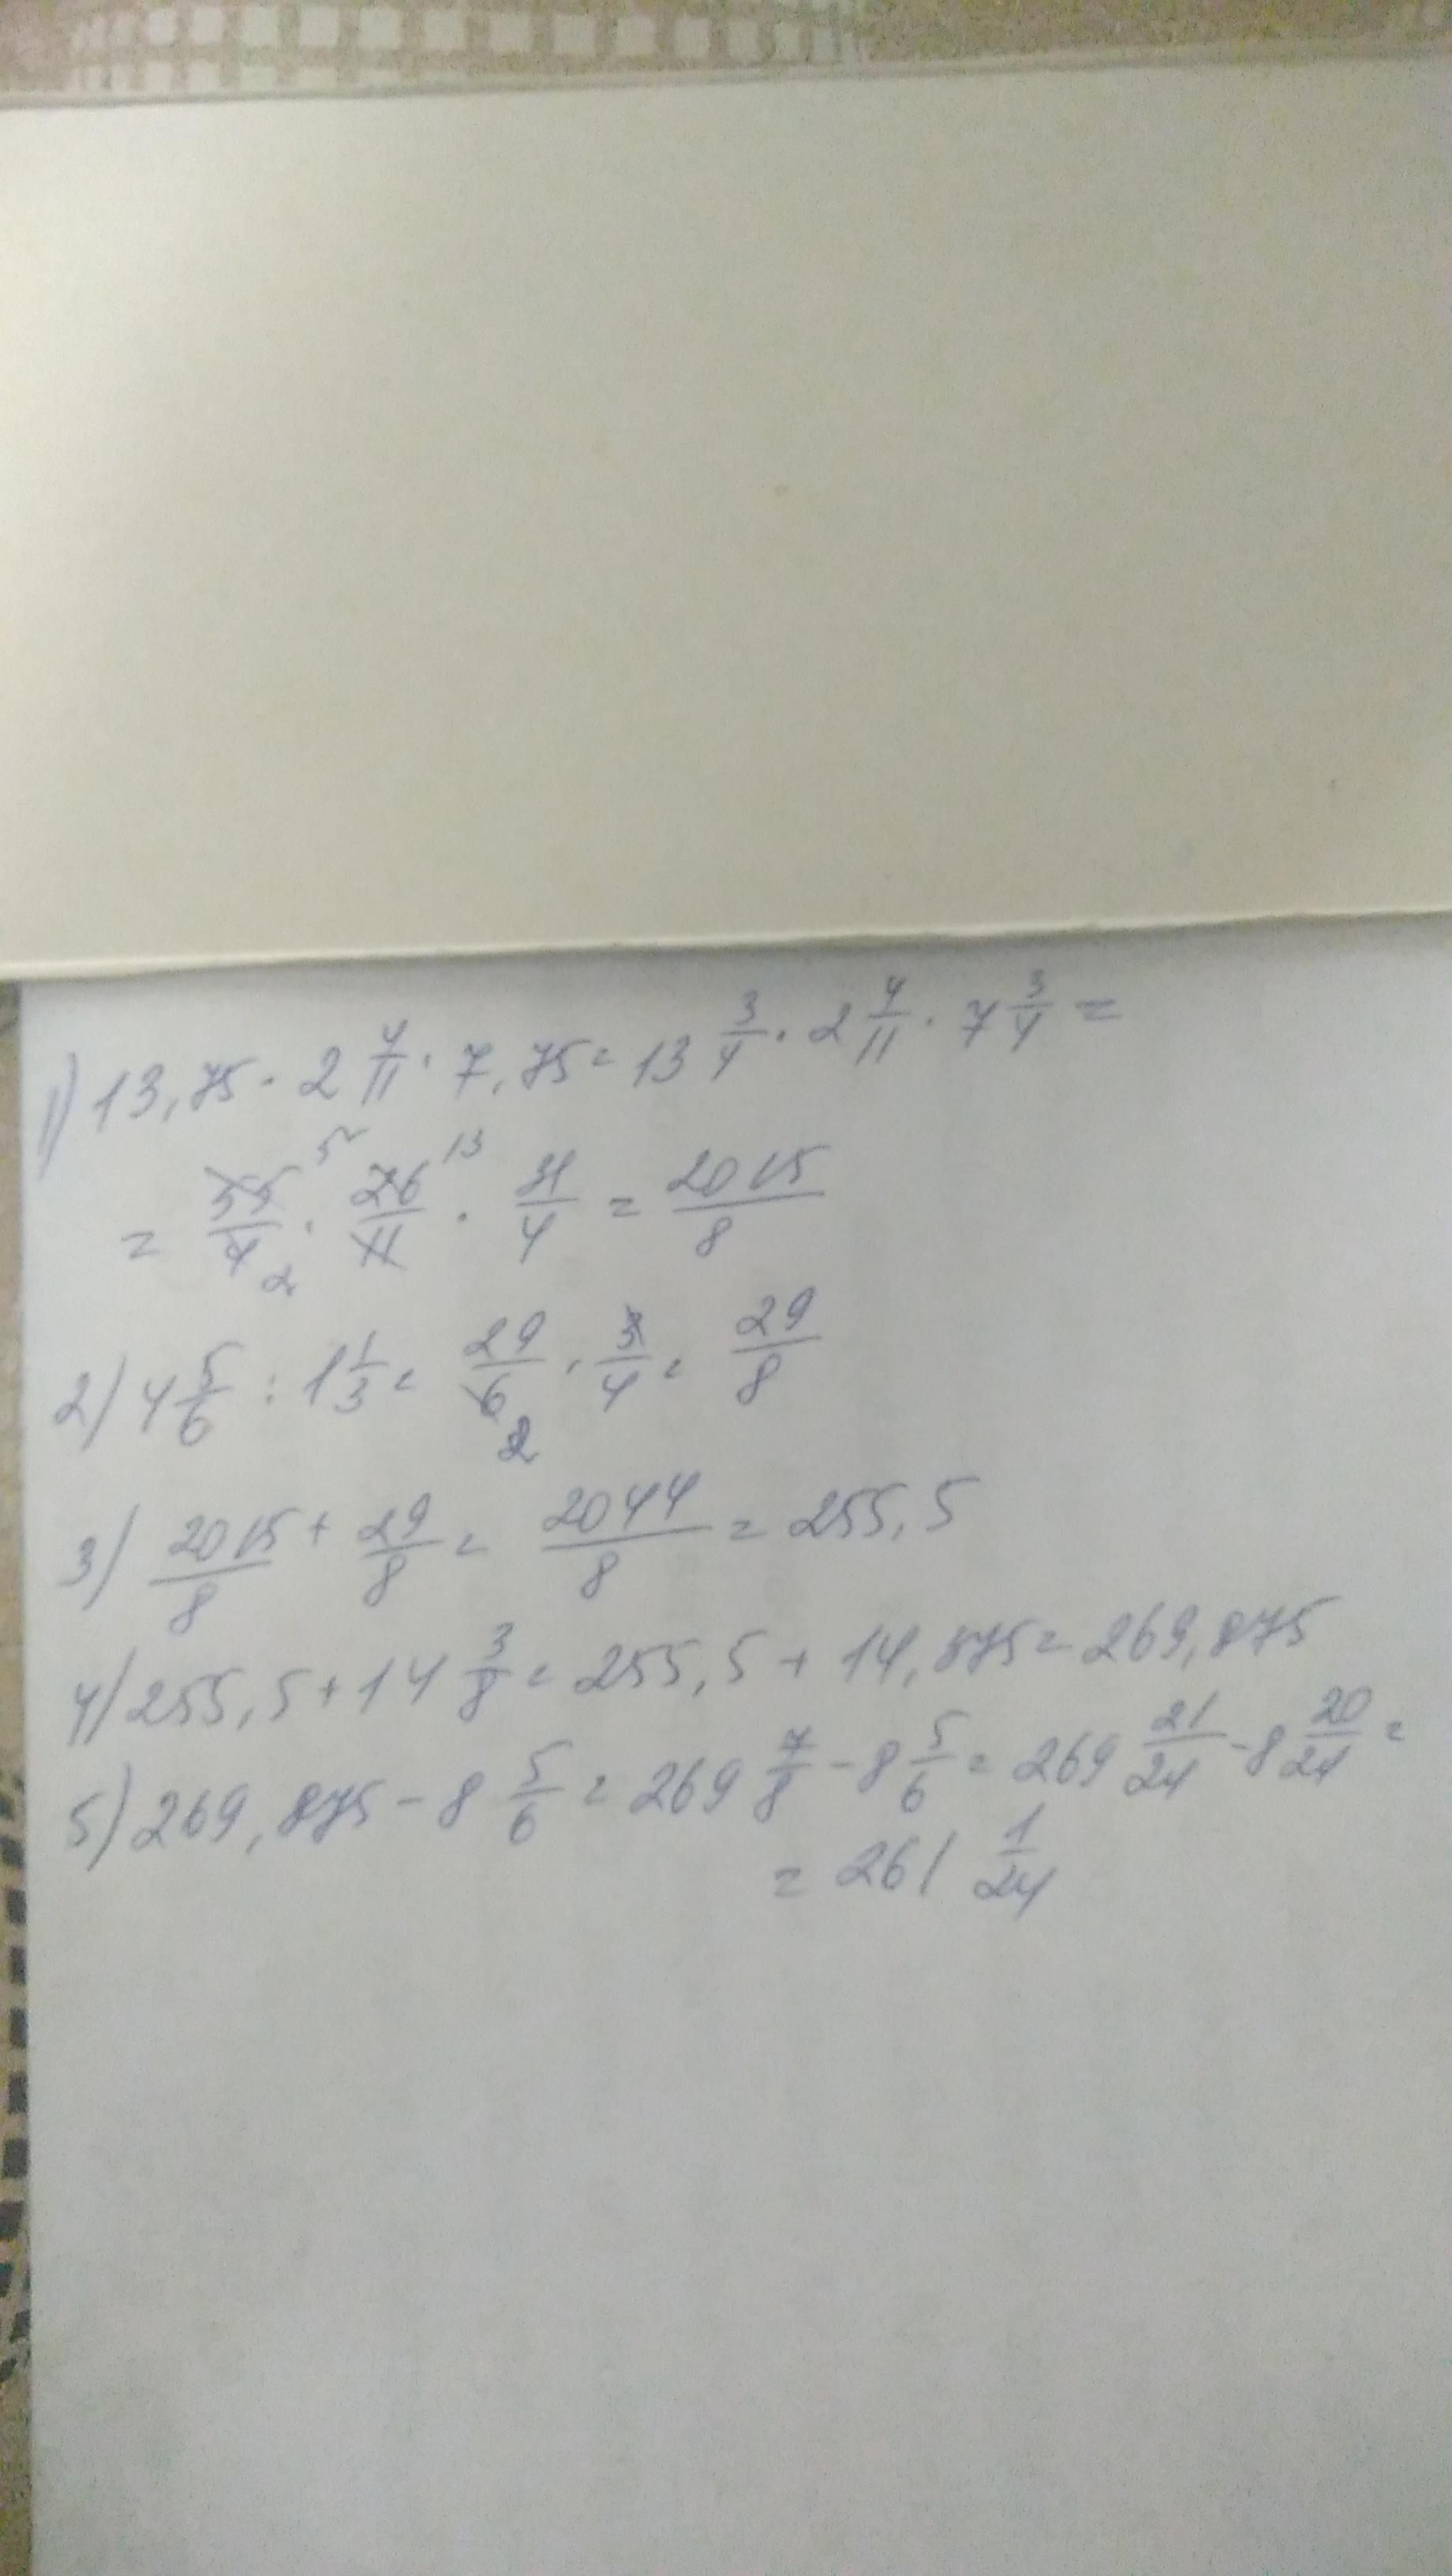 1) 13,75 · 2 4/11 · 7,75 = 13 3/4 · 2 4/11 · 7 3/4 =
= 55/4 5 2 · 26/11 13 · 31/4 = 2015/8
2) 4 5/6 : 1 1/3 = 29/6 2 · 3/4 = 29/8
3) 2015/8 + 29/8 = 2044/8 = 255,5
4) 255,5 + 14 3/8 = 255,5 + 14,875 = 269,875
5) 269,875 - 8 5/6 = 269 7/8 - 8 5/6 = 269 21/24 - 8 20/24 =
= 261 1/24